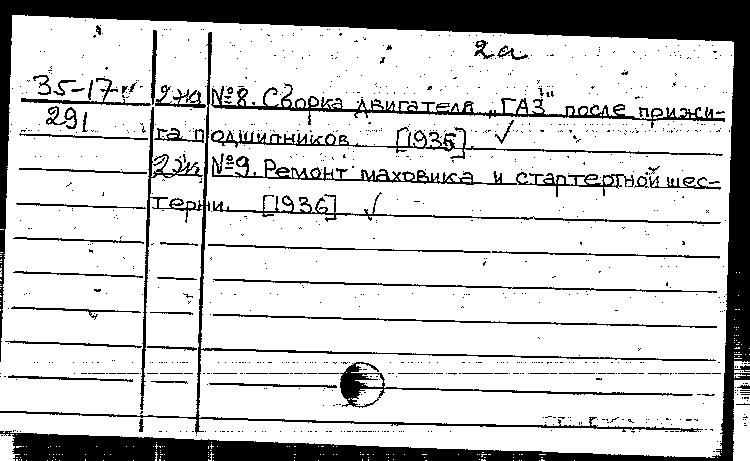 2а
35-17 2 экз №8. Сборка двигателя „ГАЗ" после прижи-
291 га подшипников. [1935] ✓
2 экз №9. Ремонт маховика и стартертной шес-
терни. [1936] ✓